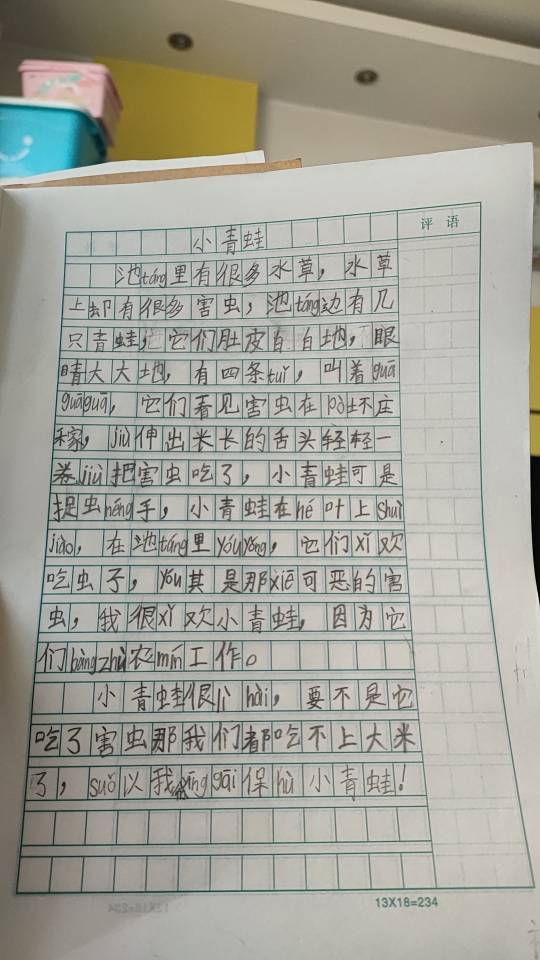 评语
小青蛙
池táng里有很多水草，水草
上却有很多害虫，池táng边有几
只青蛙，它们肚皮白白地，眼
睛大大地，有四条tuǐ，叫着guā
guāguā，它们看见害虫在pò坏庄
稼，jiù伸出长长的舌头轻轻一
卷jiù把害虫吃了，小青蛙可是
捉虫néng手，小青蛙在hé叶上shuì
jiào，在池táng里yóuyǒng，它们xǐ欢
吃虫子，yóu其是那xiē可恶的害
虫，我很xǐ欢小青蛙，因为它
们bāngzhù农mín工作。
小青蛙很lì hài，要不是它
吃了害虫那我们都吃不上大米
了，suǒ以我们yīng gāi保hù小青蛙！
13X18=234